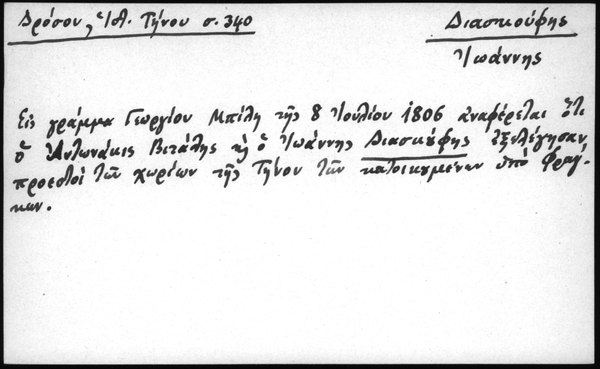 Δρόσου, Ἱστ. Τήνου σ. 340
Διασκούφης
Ἰωάννης
Εἰς γράμμα Γεωργίου Μπίλη τῆς 8 Ἰουλίου 1806 ἀναφέρεται ὅτι
ὁ Ἀντωνάκις Βιτάλης κ ὁ Ἰωάννης Διασκούφης ἐξελέγησαν
προεστοί τῶν χωρίων τῆς Τήνου τῶν κατοικουμένων ὑπό Φράγ-
κων.